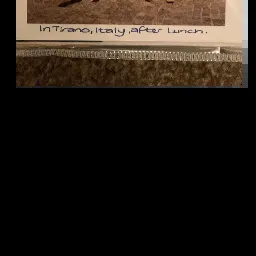 In Tirano, Italy, after lunch.